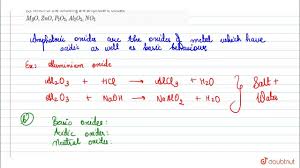 MgO, ZnO, P₂O₃, Al₂O₃, NO₂
Amphoteric oxides are the oxides of metal which have
acidic as well as basic behaviour
Ex: aluminium oxide
Al₂O₃ + HCl → AlCl₃ + H₂O
Al₂O₃ + NaOH → NaAlO₂ + H₂O
Salt + Water
b)
Basic oxides:
Acidic oxides:
Neutral oxides:
doubtnut